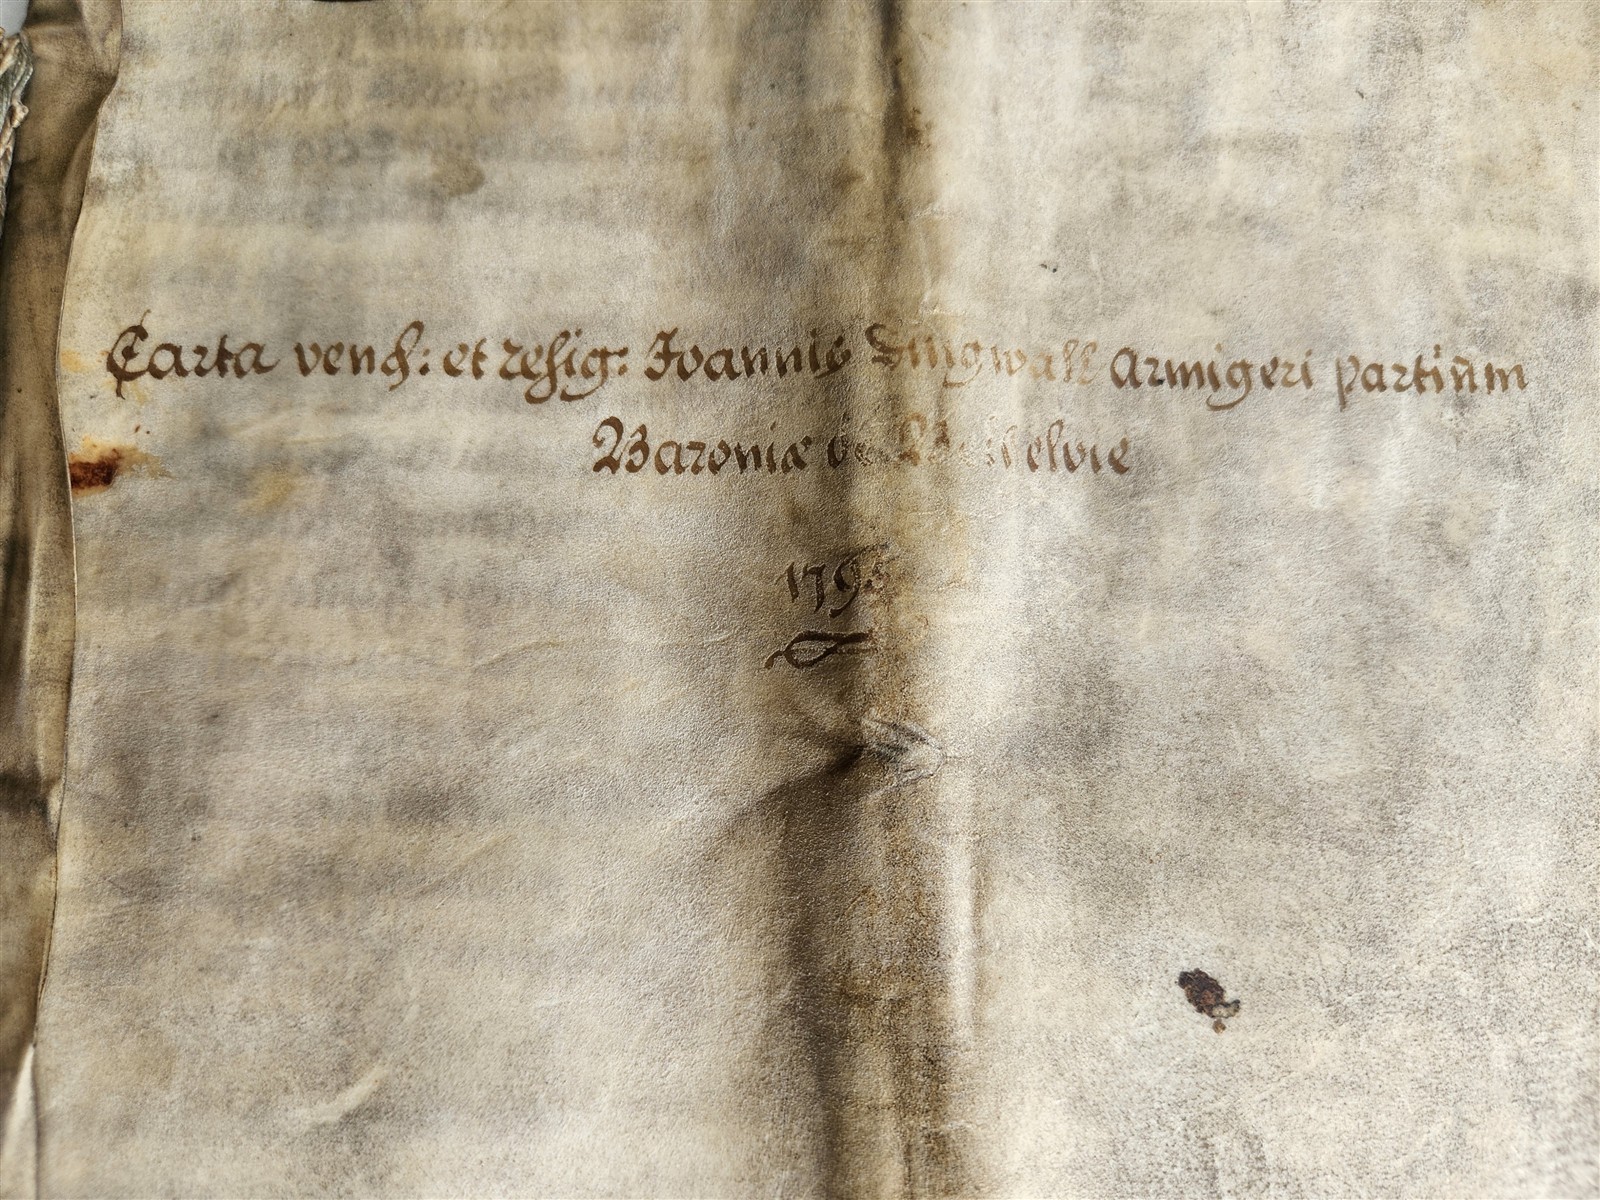 Carta vend: et resig: Joannis Dingwall Armigeri partium
Baroniæ de
1795